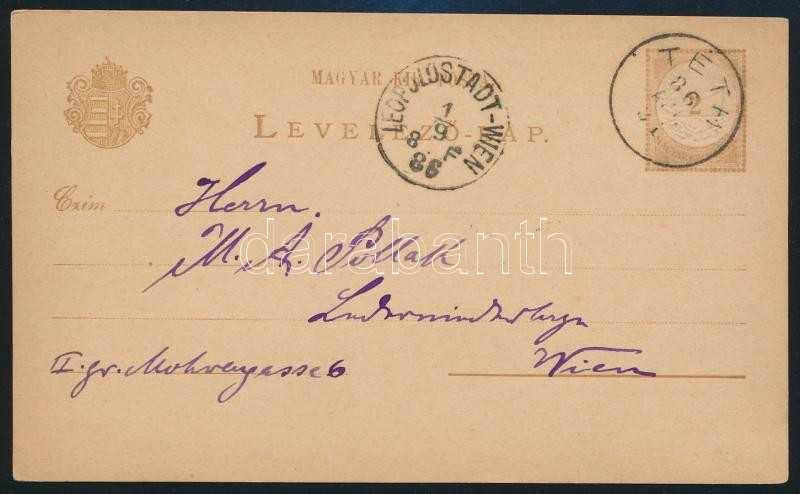 MAGYAR KIR.
LEVELEZŐ-LAP.
LEOPOLDSTADT-WIEN
1/9
8 F
86
TETH
86
2
Czim
Herrn.
M. A. Pollak
darabanth
Wien
I. gr. Mohrengasse 6